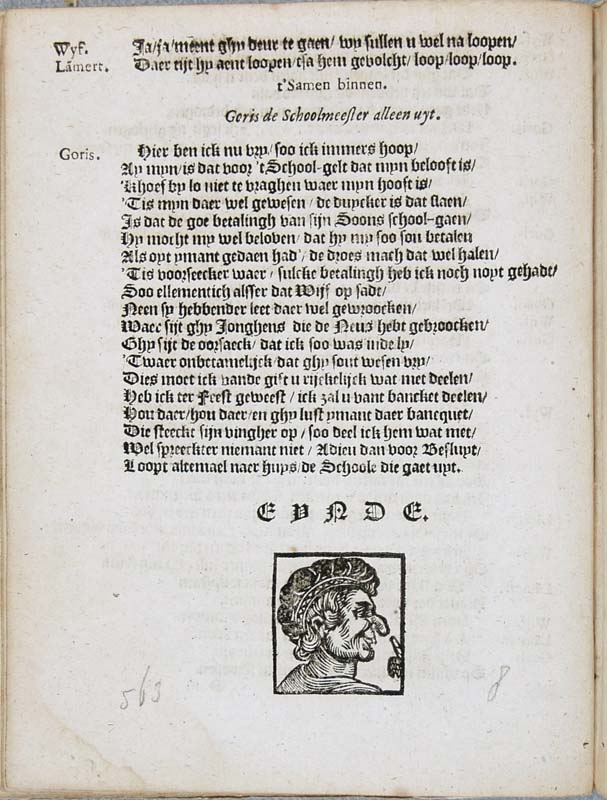 Wyf. Ja/ja/meent ghy deur te gaen/ wy sullen u wel na loopen/
Lāmert. Daer tijt hy aent loopen/tsa hem gevolcht/ loop/loop/loop.
t'Samen binnen.
Goris de Schoolmeester alleen uyt.
Goris. Hier ben ick nu vry/ soo ick immers hoop/
Ay myn/ is dat voor 't School-gelt dat myn belooft is/
'khoef by lo niet te vraghen waer myn hooft is/
'Tis myn daer wel gewesen/ de duycker is dat slaen/
Is dat de goe betalingh van sijn Soons school-gaen/
Hy mocht my wel beloven/ dat hy my soo sou betalen
Als oyt ymant gedaen had/ de droes mach dat wel halen/
'Tis voorseecker waer/ sulcke betalingh heb ick noch noyt gehadt/
Soo ellementich alsser dat Wijf op sadt/
Neen sy hebbender leet daer wel gewroocken/
Waer sijt ghy Jonghens die de Neus hebt gebroocken/
Ghy sijt de oorsaeck/ dat ick soo was inde ly/
'Twaer onbetamelijck/ dat ghy sout wesen vry/
Dies moet ick vande gift u rijckelijck wat met deelen/
Heb ick ter Feest geweest/ ick zal u vant bancket deelen/
Hou daer/ hou daer/ en ghy lust ymant daer bancquet/
Die steeckt sijn vingher op/ soo deel ick hem wat met/
Wel spreeckter niemant niet/ Adieu dan voor Besluyt/
Loopt altemael naer huys/ de Schoole die gaet uyt.
EYNDE.
563
8